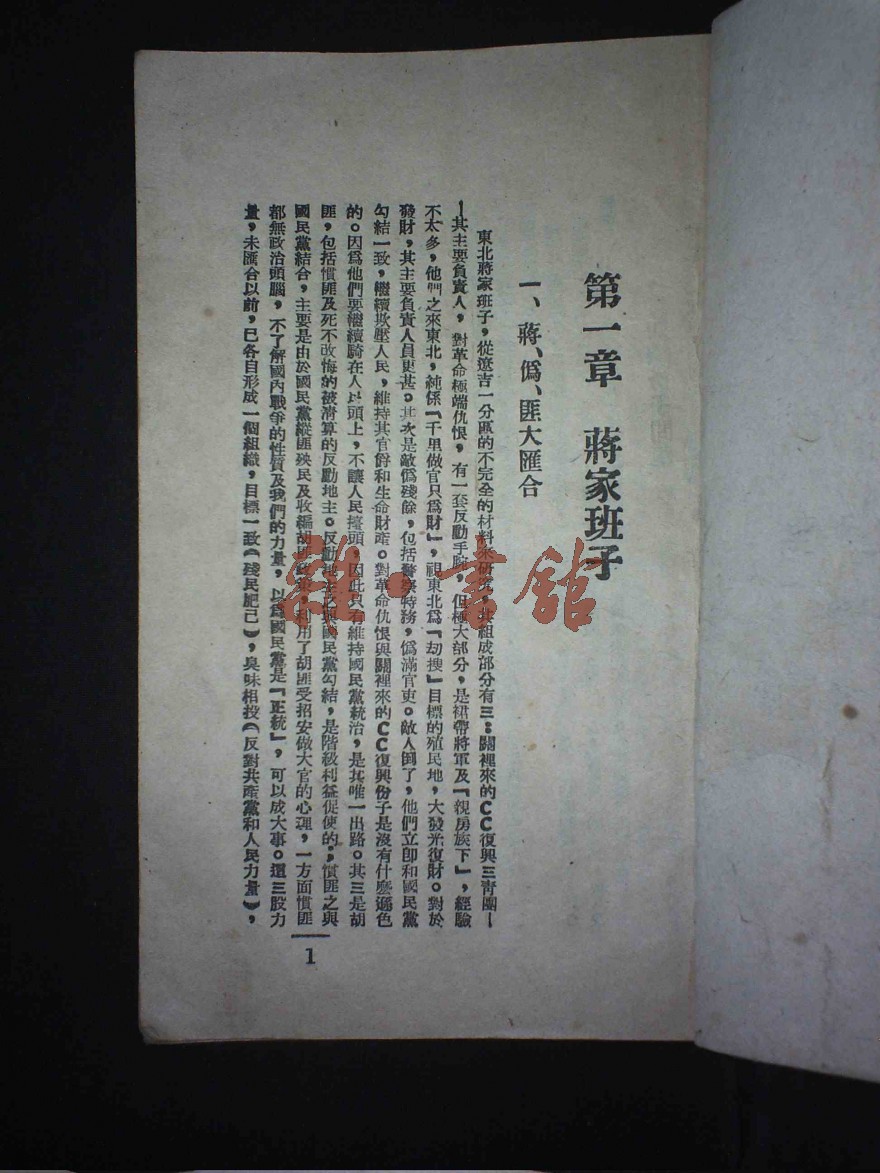 第一章　蔣家班子
一、蔣、僞、匪大匯合
東北蔣家班子，從遼吉一分區的不完全的材料來研究，其組成部分有三：關裡來的CC復興三靑團—
—其主要負責人，對革命極端仇恨，有一套反動手腕，但極大部分，是裙帶將軍及「親房族下」，經驗
不太多，他們之來東北，純係「千里做官只爲財」，視東北爲「劫搜」目標的殖民地，大發光復財。對於
發財，其主要負責人員更甚。其次是敵僞殘餘，包括警察特務，僞滿官吏。敵人倒了，他們立卽和國民黨
勾結一致，繼續欺壓人民，維持其官爵和生命財產。對革命仇恨與關裡來的CC復興份子是沒有什麽遜色
的。因爲他們要繼續騎在人民頭上，不讓人民擡頭，因此只有維持國民黨統治，是其唯一出路。其三是胡
匪，包括慣匪及死不改悔的被淸算的反動地主。反動地主之與國民黨勾結，是階級利益促使的；慣匪之與
國民黨結合，主要是由於國民黨縱匪殃民及收編胡匪政策，利用了胡匪受招安做大官的心理，一方面慣匪
都無政治頭腦，不了解國內戰爭的性質及我們的力量，以爲國民黨是「正統」，可以成大事。這三股力
量，未匯合以前，已各自形成一個組織，目標一致（殘民肥己），臭味相投（反對共產黨和人民力量），
1
雜·書館